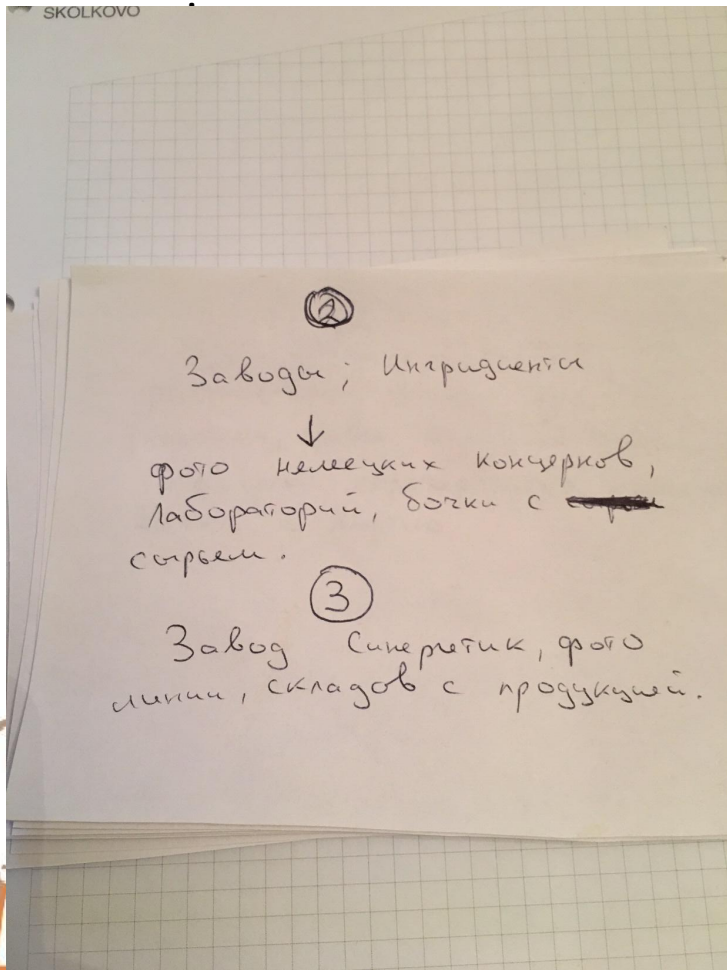 SKOLKOVO
2
Заводы; Ингридиенты
↓
фото немецких концернов,
лабораторий, бочки с
сырьем.
3
Завод Синергетик, фото
линии, складов с продукцией.